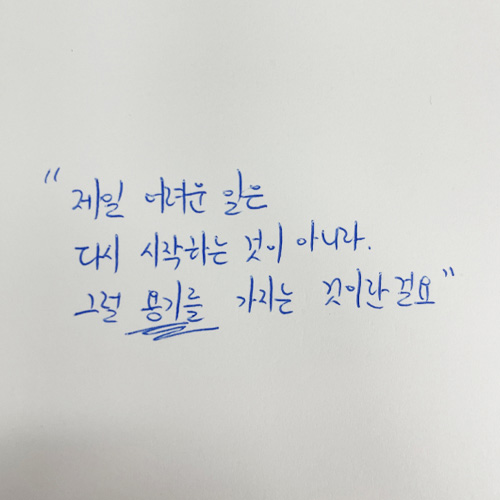 "제일 어려운 일은
다시 시작하는 것이 아니라.
그럴 용기를 가지는 것이란 걸요"